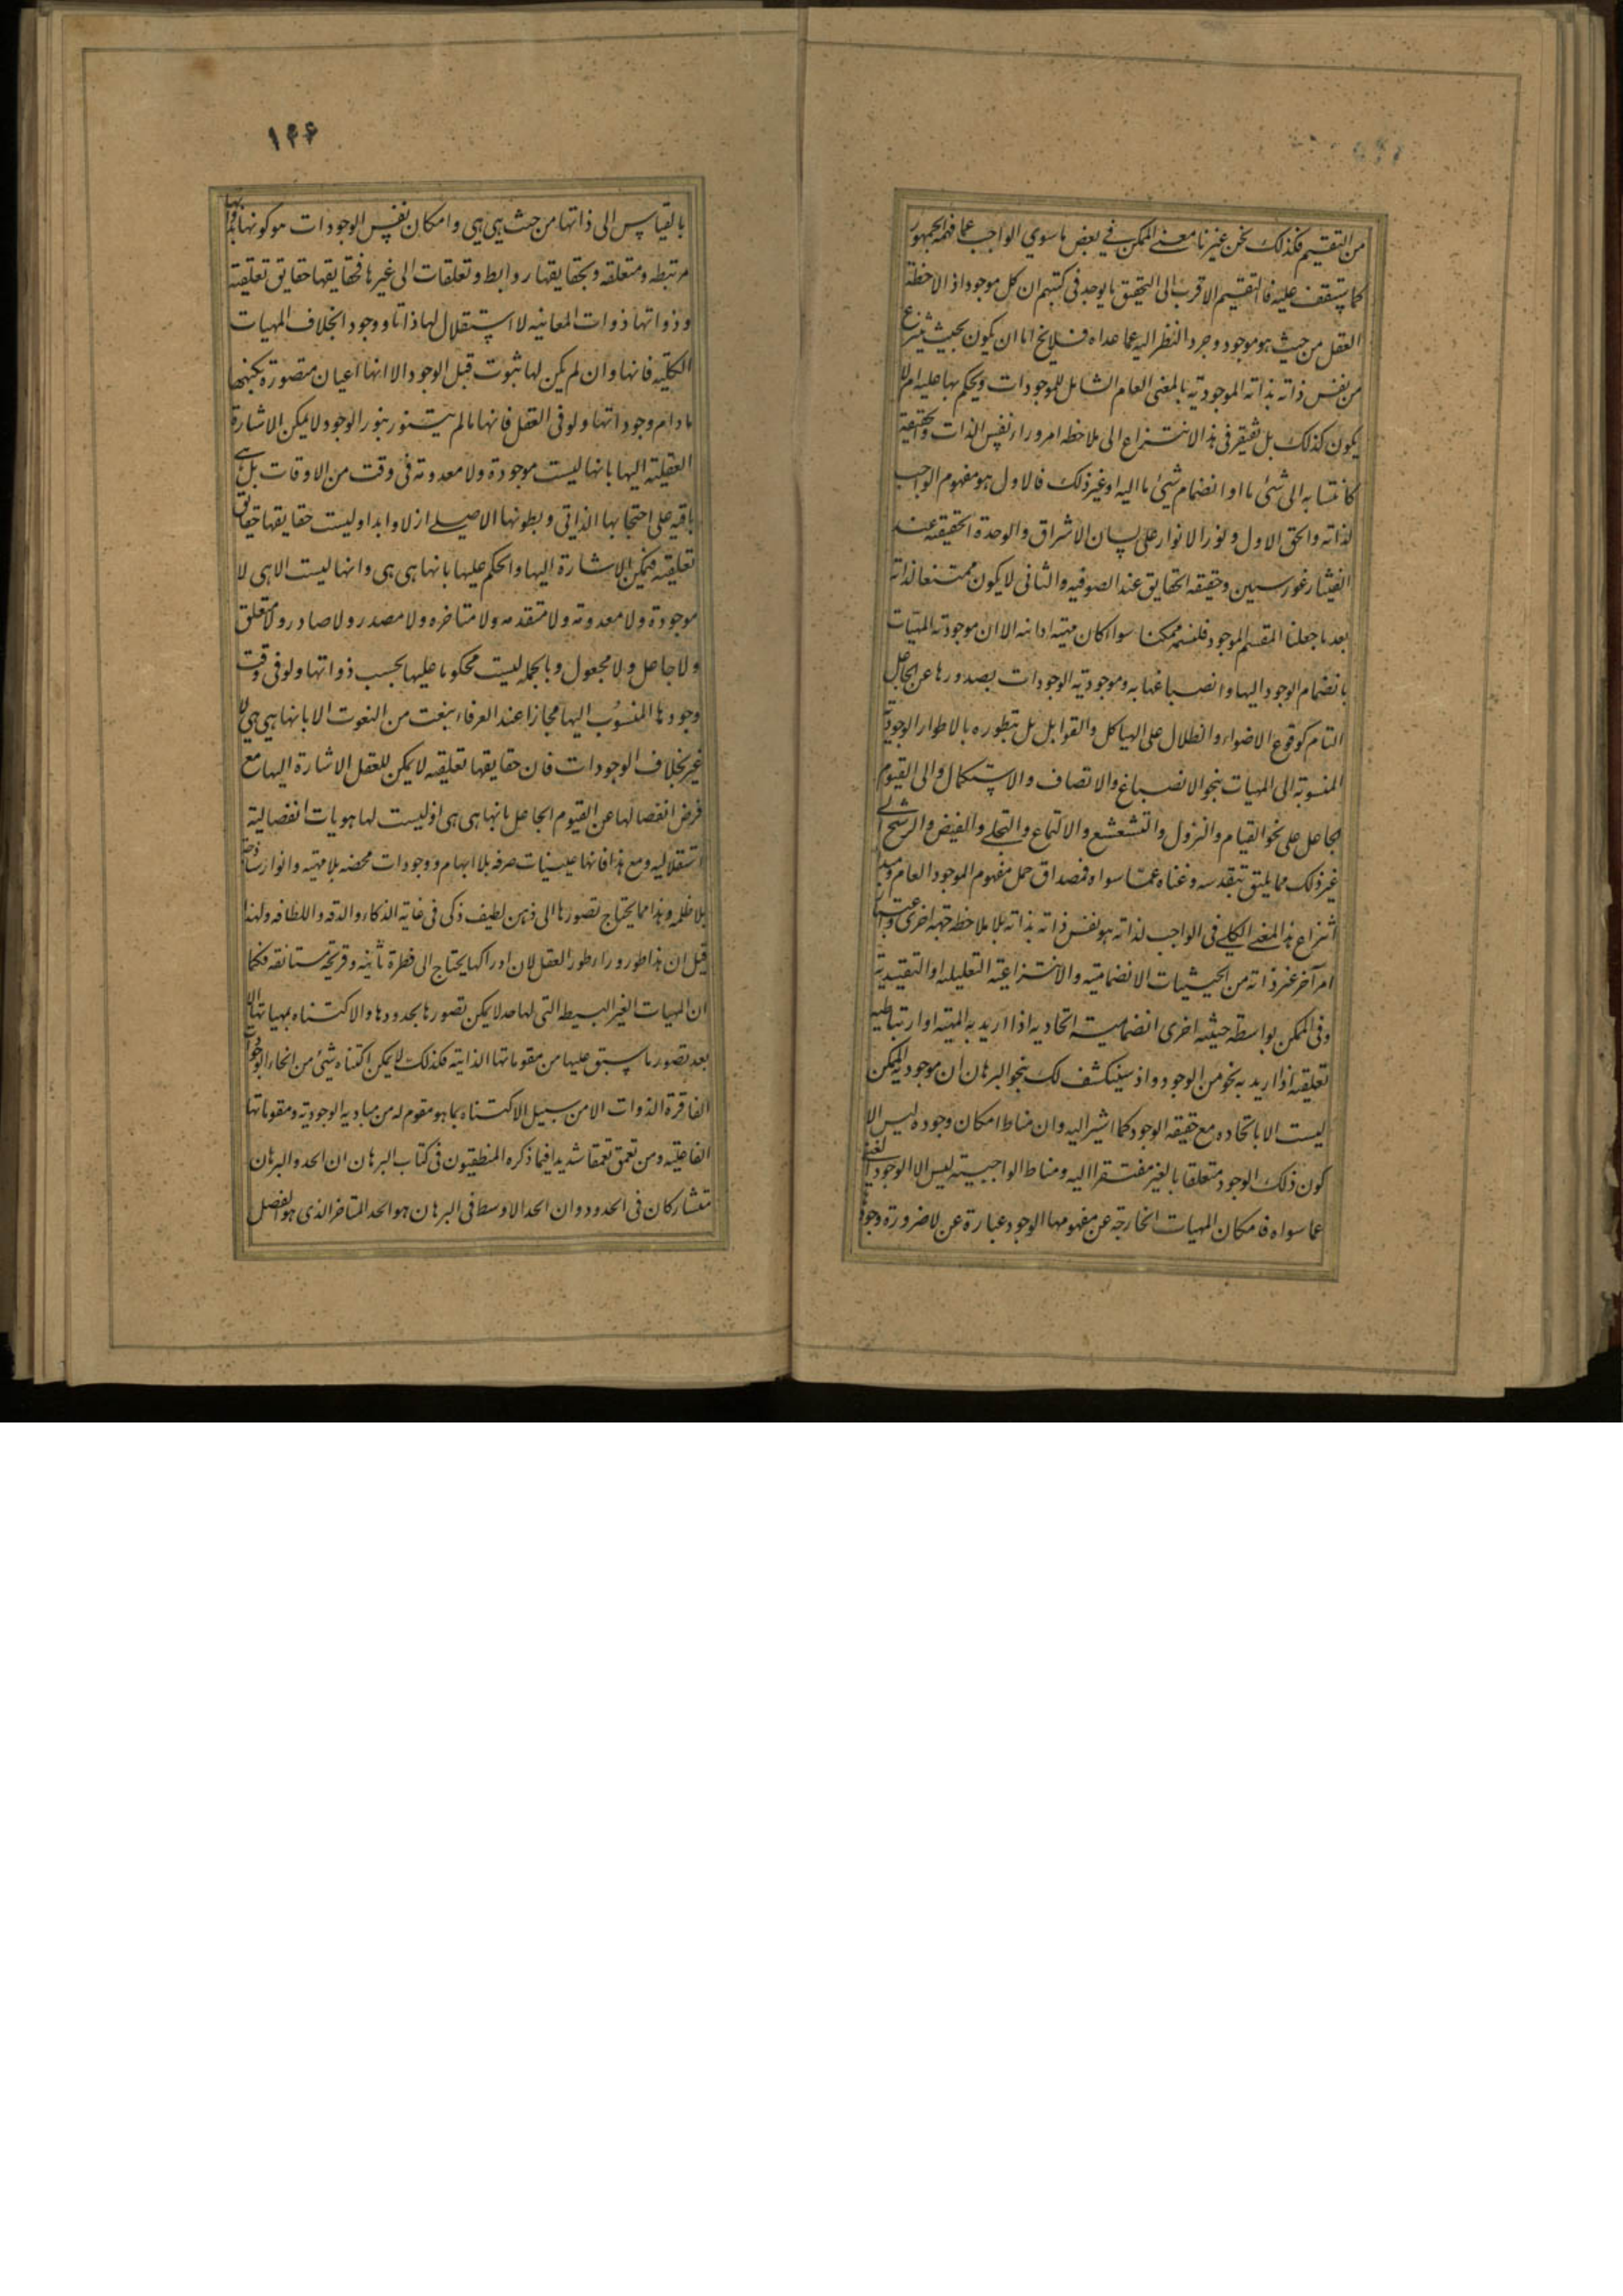 من التقسيم فكذلك نحن غيرنا معنى الممكن في بعض ما سوى الواجب عما فهمه الجمهور
كما ستقف عليه فالتقسيم الاقرب الى التحقيق ما يوجد فى كتبهم ان كل موجود اذا لاحظه
العقل من حيث هو موجود وجرد النظر اليه عما عداه فلا يخ اما ان يكون بحيث ينتزع
من نفس ذاته بذاته الموجودية بالمعنى العام الشامل للموجودات ويحكم بها عليه ام لا
يكون كذلك بل يفتقر فى هذا الانتزاع الى ملاحظه امر وراء نفس الذات والحقيقة
كانتسابه الى شئ ما او انضمام شئ ما اليه او غير ذلك فالاول هو مفهوم الواجب
لذاته والحق الاول ونور الانوار على لسان الاشراق والوحدة الحقيقيه عند
الفيثاغورسيين وحقيقه الحقايق عند الصوفيه والثانى لا يكون ممتنعا لذاته
بعد ما جعلنا المقسم الموجود فلنسمه ممكنا سواء كان مهية او انية الا ان موجودية المهيات
بانضمام الوجود اليها وانصباغها به وموجودية الوجودات بصدورها عن الجاعل
التام كوقوع الاضواء والظلال على الهياكل والقوابل بل بتطوره بالاطوار الوجودية
المنسوبة الى المهيات بنحو الانصباغ والاتصاف والاستكمال والى القيوم
الجاعل على نحو القيام والنزول والتشعشع والالتماع والتجلى والفيض والرشح الى
غير ذلك مما يليق بتقدسه وغناه عما سواه فمصداق حمل مفهوم الموجود العام ومبدا
انتزاع هذا المعنى الكلى فى الواجب لذاته هو نفس ذاته بذاته بلا ملاحظه جهة اخرى واعتبار
امر آخر غير ذاته من الحيثيات الانضمامية والانتزاعية التعليليه او التقييدية
وفى الممكن بواسطة حيثيه اخرى انضمامية اتحاديه اذا اريد به المهية او ارتباطيه
تعلقيه اذا اريد به نحو من الوجود واذ سينكشف لك بنحو البرهان ان موجودية الممكن
ليست الا باتحاده مع حقيقه الوجود كما اشير اليه وان مناط امكان وجوده ليس الا
كون ذلك الوجود متعلقا بالغير مفتقرا اليه ومناط الواجبية ليس الا الوجود الغنى
عما سواه فامكان المهيات الخارجة عن مفهومها الوجود عبارة عن لا ضرورة وجودها
١٤٤
بالقياس الى ذاتها من حيث هى هى وامكان نفس الوجودات هو كونها بذواتها
مرتبطه ومتعلقه وبحقايقها روابط وتعلقات الى غيرها فحقايقها حقايق تعلقية
وذواتها ذوات لمعانيه لا استقلال لها ذاتا ووجودا بخلاف المهيات
الكلية فانها وان لم يكن لها ثبوت قبل الوجود الا انها اعيان متصورة بكنهها
ما دام وجوداتها ولو فى العقل فانها ما لم يتنور بنور الوجود لا يمكن الاشارة
العقلية اليها بانها ليست موجودة ولا معدومة فى وقت من الاوقات بل هى
باقيه على احتجابها الذاتى وبطونها الاصلى ازلا وابدا وليست حقايقها حقايق
تعلقيه فيمكن الاشارة اليها والحكم عليها بانها هى هى وانها ليست الا هى لا
موجودة ولا معدومة ولا متقدمه ولا متاخره ولا مصدر ولا صادر ولا متعلق
ولا جاعل ولا مجعول وبالجمله ليست محكوما عليها بحسب ذواتها ولو فى وقت
وجودها المنسوب اليها مجازا عند العرفاء بنعت من النعوت الا بانها هى هى لا
غير بخلاف الوجودات فان حقايقها تعلقيه لا يمكن للعقل الاشارة اليها مع
فرض انفصالها عن القيوم الجاعل بانها هى هى اذ ليست لها هويات انفصالية
استقلاليه ومع هذا فانها عينيات صرفه بلا ابهام ووجودات محضه بلا مهية وانوار ساذجة
بلا ظلمه وهذا مما يحتاج تصورها الى ذهن لطيف ذكى فى غاية الذكاء والدقه واللطافه ولهذا
قيل ان هذا طور وراء طور العقل لان ادراكها يحتاج الى فطرة ثانيه وقريحة مستانفه فكما
ان المهيات الغير البسيطه التى لها حد لا يمكن تصورها بحدودها والاكتناه بمهياتها الا
بعد تصور ما سبق عليها من مقوماتها الذاتيه فكذلك لا يمكن اكتناه شئ من انحاء الوجودات
الفاقرة الذوات الا من سبيل الاكتناه بما هو مقوم له من مباديه الوجودية ومقوماتها
الفاعليه ومن تعمق تعمقا شديدا فيما ذكره المنطقيون فى كتاب البرهان ان الحد والبرهان
متشاركان فى الحدود وان الحد الاوسط فى البرهان هو الحد المتاخر الذى هو الفصل